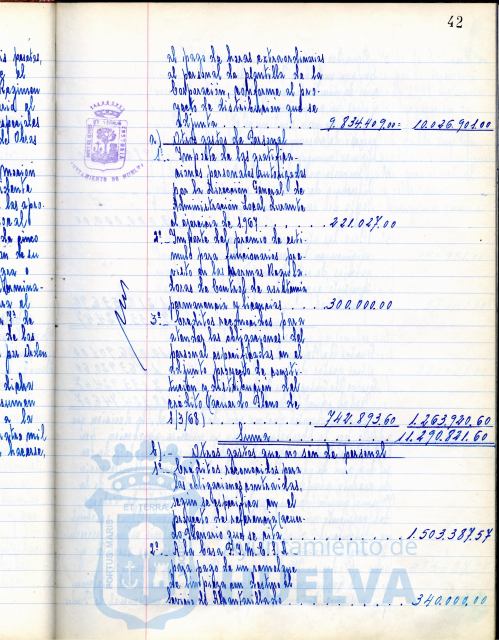 42
al pago de horas extraordinarias
al personal de plantilla de la
Corporación, conforme al pro-
yecto de distribución que se
adjunta . . . . . . . . . 9.834.409,00= 10.026.901.00
a) Otros gastos de Personal
1º.- Importe de las gratifica-
ciones personales autorizadas
por la Dirección General de
Administración Local durante
el ejercicio de 1967 . . . . . . . 221.027.00
2º.- Importe del premio de estí-
mulo para funcionarios pre-
visto en las normas regula-
doras de control de asistencia
permanencia y licencias . . . . . 300.000.00
3º.- Créditos reconocidos para
atender las obligaciones del
personal especificadas en el
adjunto proyecto de consti-
tución y distribución del
crédito (acuerdo Pleno de
1/3/68) . . . . . . . . . . 742.893.60 1.263.920.60
Suma . . . . . . . . 11.290.821.60
b).- Otros gastos que no son de personal
1º.- Créditos reconocidos para
las obligaciones contraidas,
según se especifica en el
proyecto de referencia (acuer-
do Plenario que se cita . . . . . . . 1.503.387.57
2º.- A la casa
para pago de un remolque
de limpieza con destino al
servicio de Alcantarillado . . . . . . 340.000,00
AYUNTAMIENTO DE HUELVA
PORTUS MARIS ET TERRAE
Ayuntamiento de
HUELVA